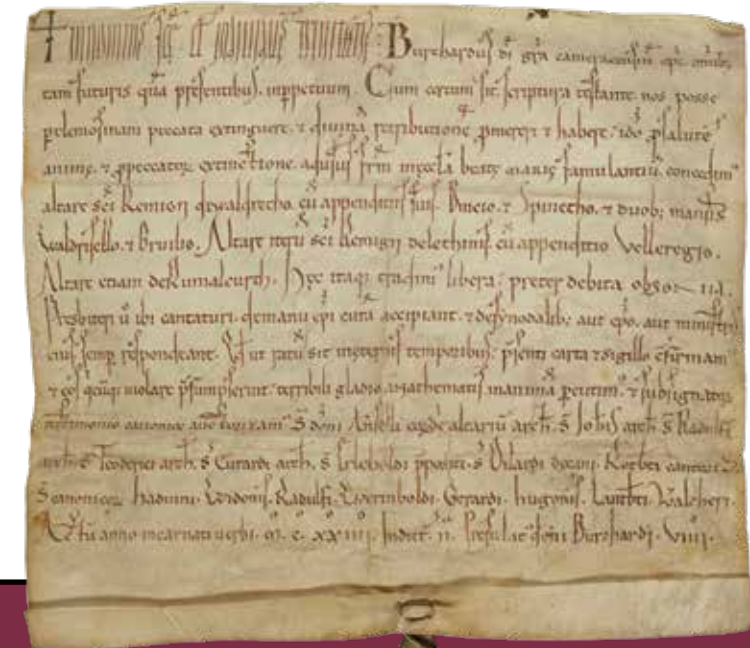 In nomine sc̄ę et individuę trinitatis. Burchardus di grā cameracensiū ep̄c omnib;
tam futuris quā pręsentibus. inppetuum. Cum certum sit scriptura testante. nos posse
p elemosinam peccata extinguere. & divinā retributionē pmereri & habere. ido p salute
animę. & p peccatorꝝ extinctione. aqjus frm in ęcc̄la beatę marię famulantiū. concedim᾽
altare sc̄i Remigij cū appendiciis suis. & Spinetho. & duob; mansis
& Bruilio. Altare itēꝝ sc̄i Remigij cū appenditio Velleregio.
Altare etiam Hęc itaqꝫ tradim᾽ libera; pręter debita obsonia.
Presbiteri ū ibi cantaturi. de manu epi curā accipiant. & de synodalib; aut epo. aut ministris
eius semp respondeant. Qd ut ratū sit inęternis temporibus; psenti carta & sigillo cfirmam᾽
& eos violare psumpserint. terribili gladio anathematis. & subsignatorꝝ
testimonio S. doni Anselli altariū arch. S. Johis arch. S. Radulfi
arch. S. Teoderici arch. S. Evrardi arch. S. Erleboldi ppositi. S. Oilardi decani. cantoris
S. canonicorꝝ. Radulfi. Werimboldi. Gerardi. hugonis. Lamb̄ti. Walcheri.
Actū anno incarnati verbi. M. C. XXIIII. Indict. II. Presulat᾽ doni Burchardi. VIIII.